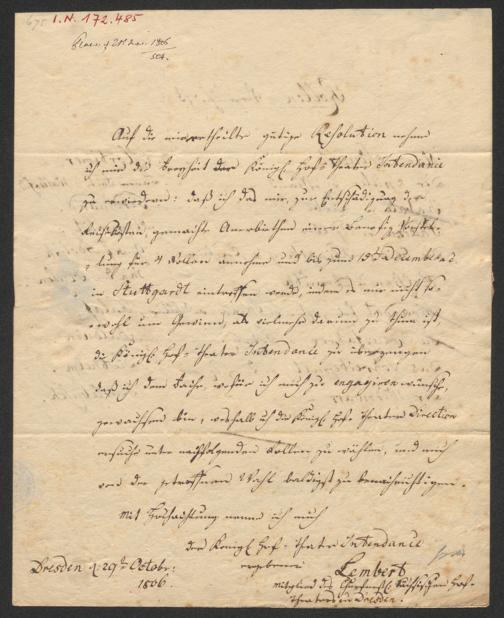 I.N. 172.485
1806
504.
Auf die mir ertheilte gütige Resolution nehme
ich mir die Freyheit der Königl Hof-Theater Intendance
zu erwiedern: daß ich das mir zur Entschädigung der
Reisekosten gemachte Anerbiethen einer Benefiz Vorstel-
lung für 4 Rollen annehme und bis zum 15ten December
in Stuttgardt eintreffen werde, indem es mir nicht so-
wohl um Gewinn, als vielmehr darum zu thun ist,
die Königl Hof-Theater Intendance zu überzeugen
daß ich dem Fache, wofür ich mich zu engagiren wünsche,
gewachsen bin, weshalb ich die Königl Hof-Theater Direction
ersuche unter nachfolgenden Rollen zu wählen, und mich
von der getroffenen Wahl baldigst zu benachrichtigen.
Mit Hochachtung nenne ich mich
der Königl Hof-Theater Intendance
ergebener
Lembert
Mitglied des Churfürstl. Sächsischen Hof-
Theaters in Dresden.
Dresden d 29t Octobr:
1806.